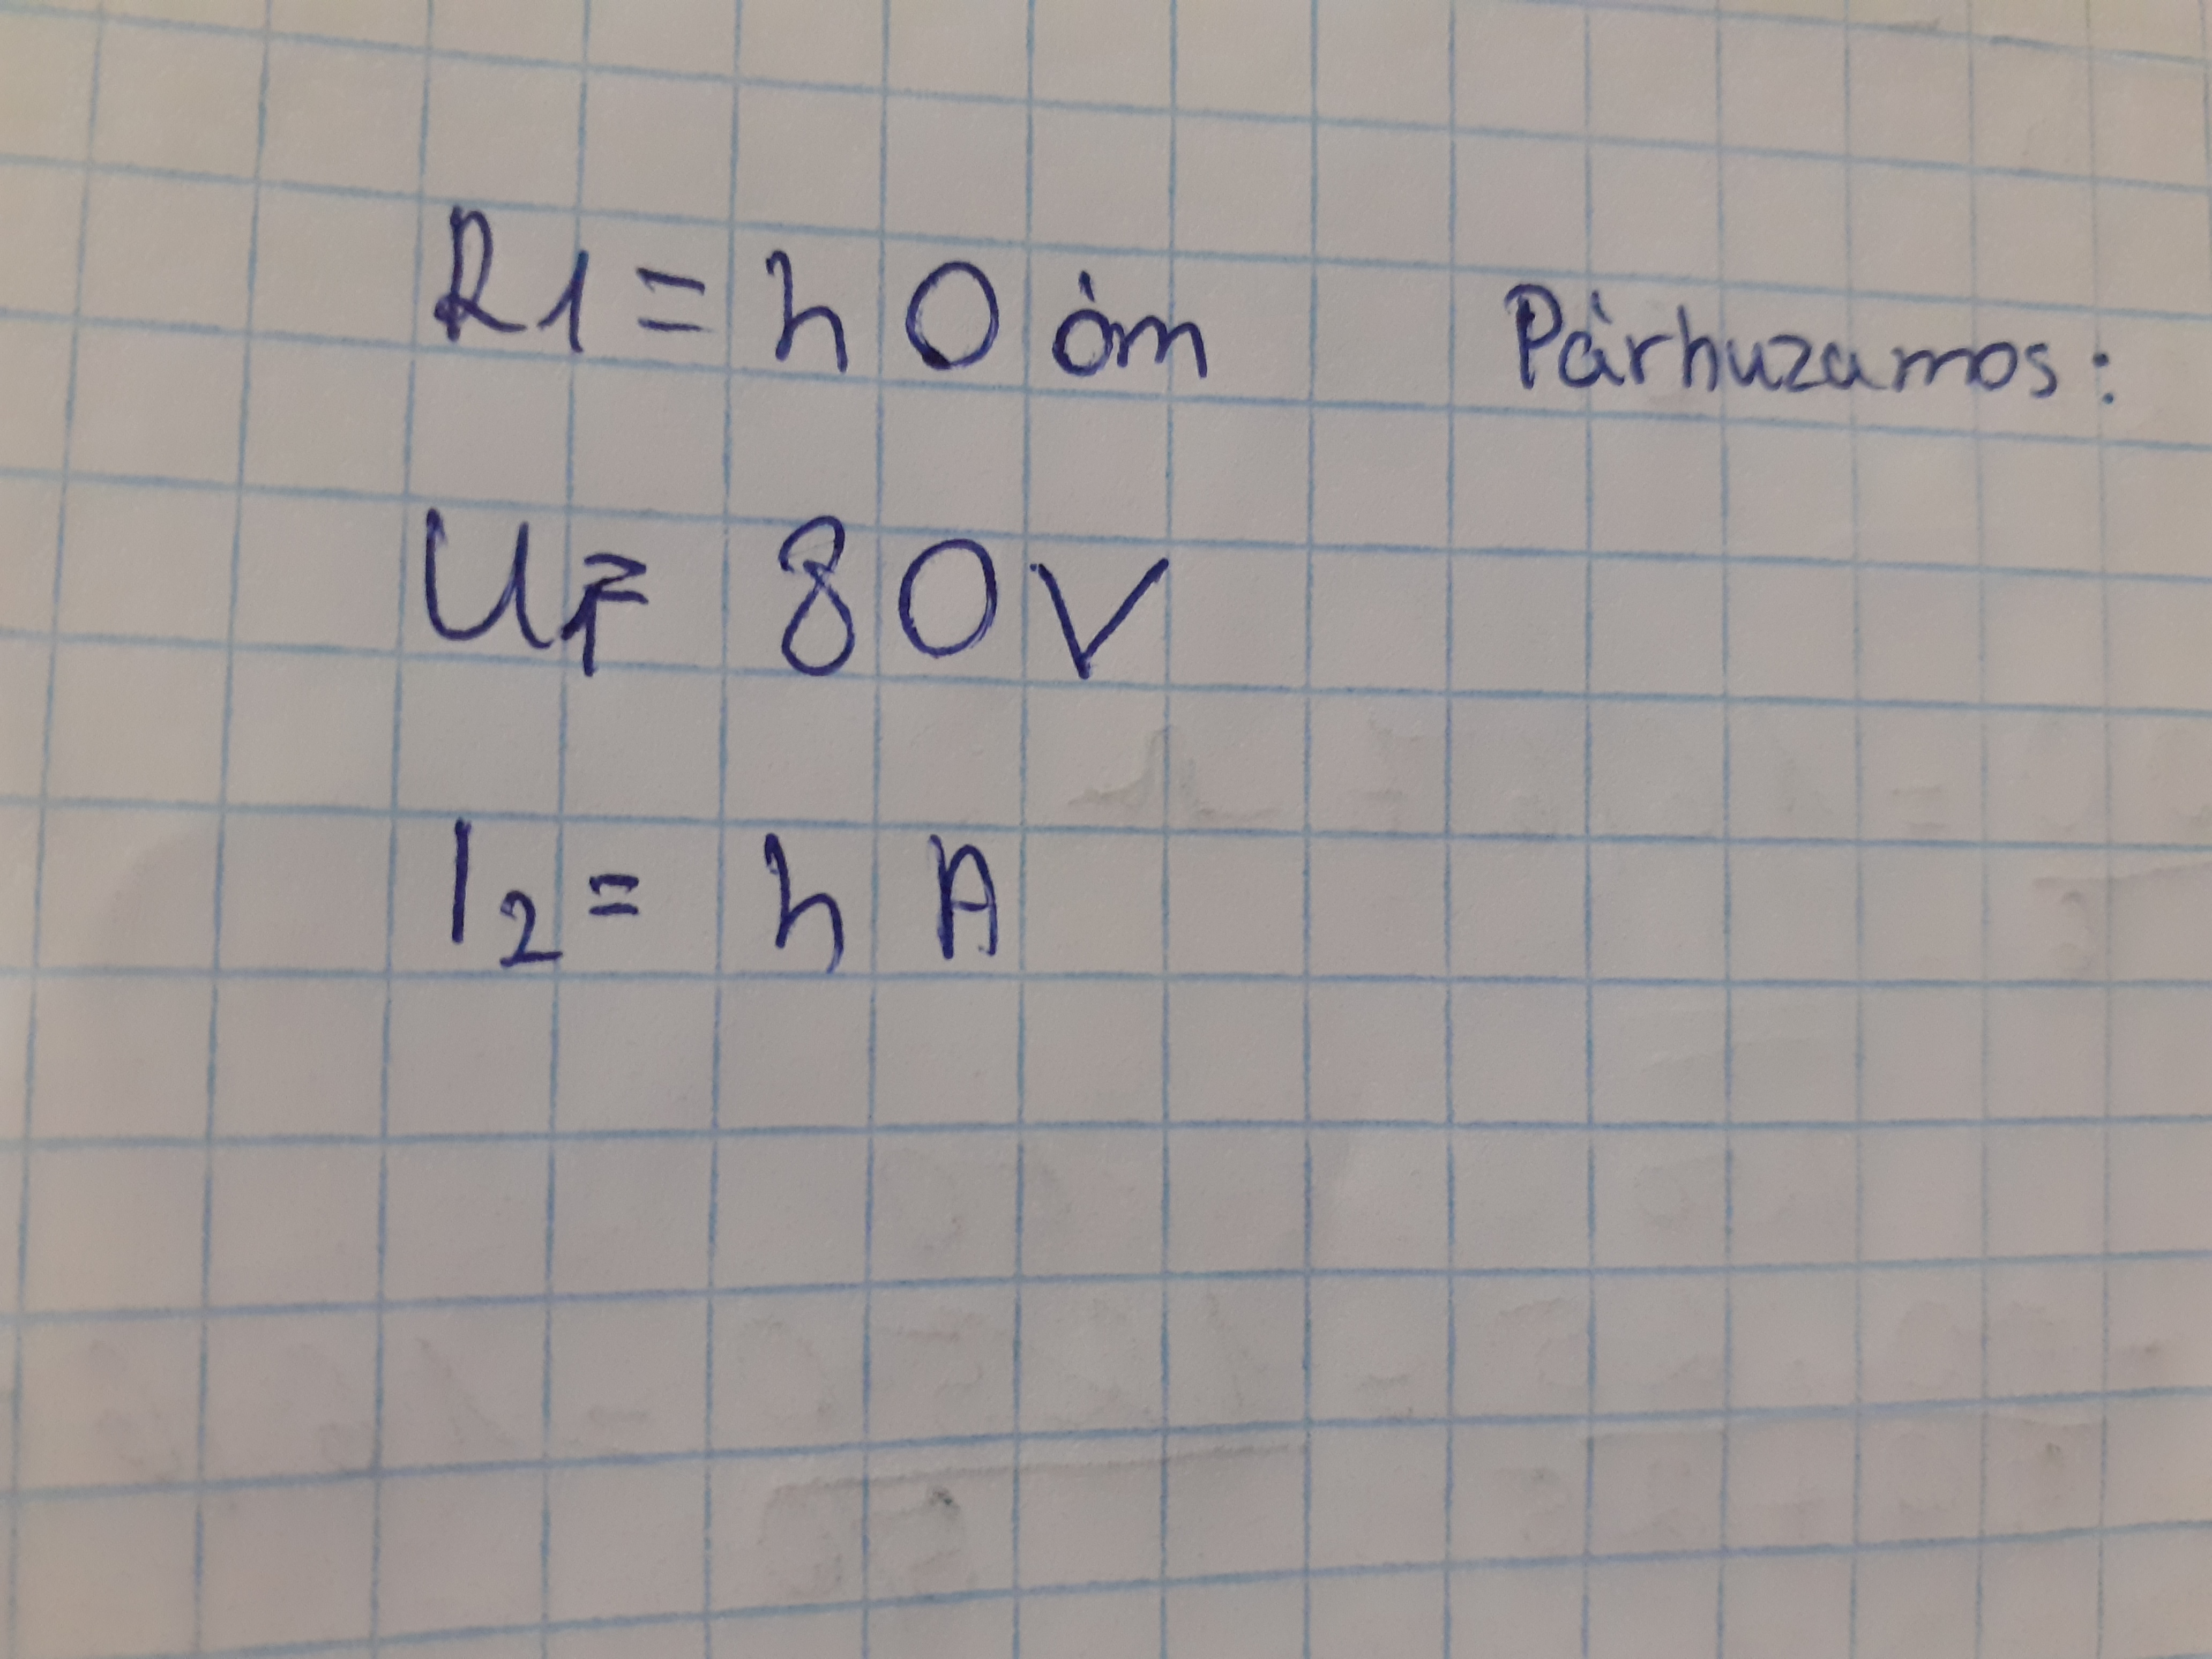 R1 = 40 óm Párhuzamos:
U1= 80V
I2 = 4 A